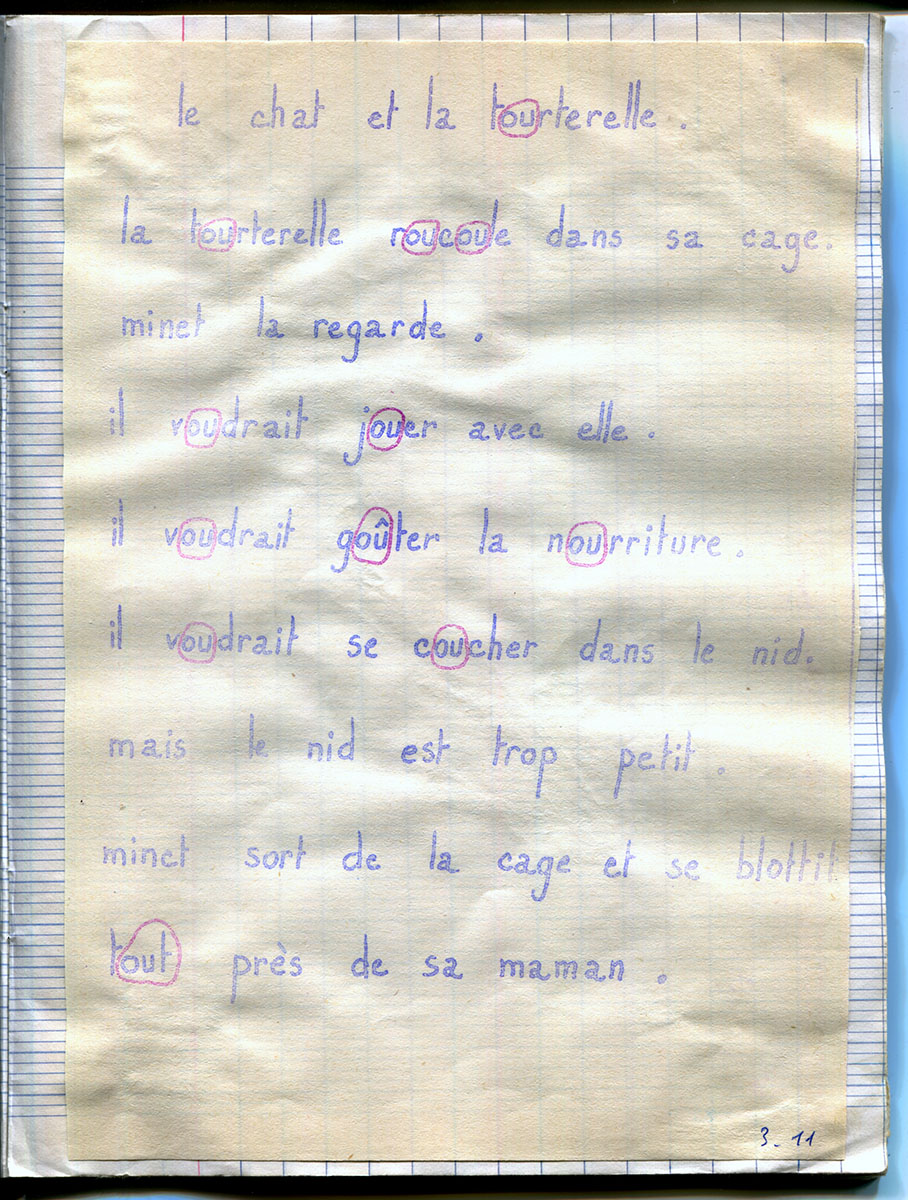 le chat et la tourterelle.
la tourterelle roucoule dans sa cage.
minet la regarde.
il voudrait jouer avec elle.
il voudrait goûter la nourriture.
il voudrait se coucher dans le nid.
mais le nid est trop petit.
minet sort de la cage et se blottit
tout près de sa maman.
3-11